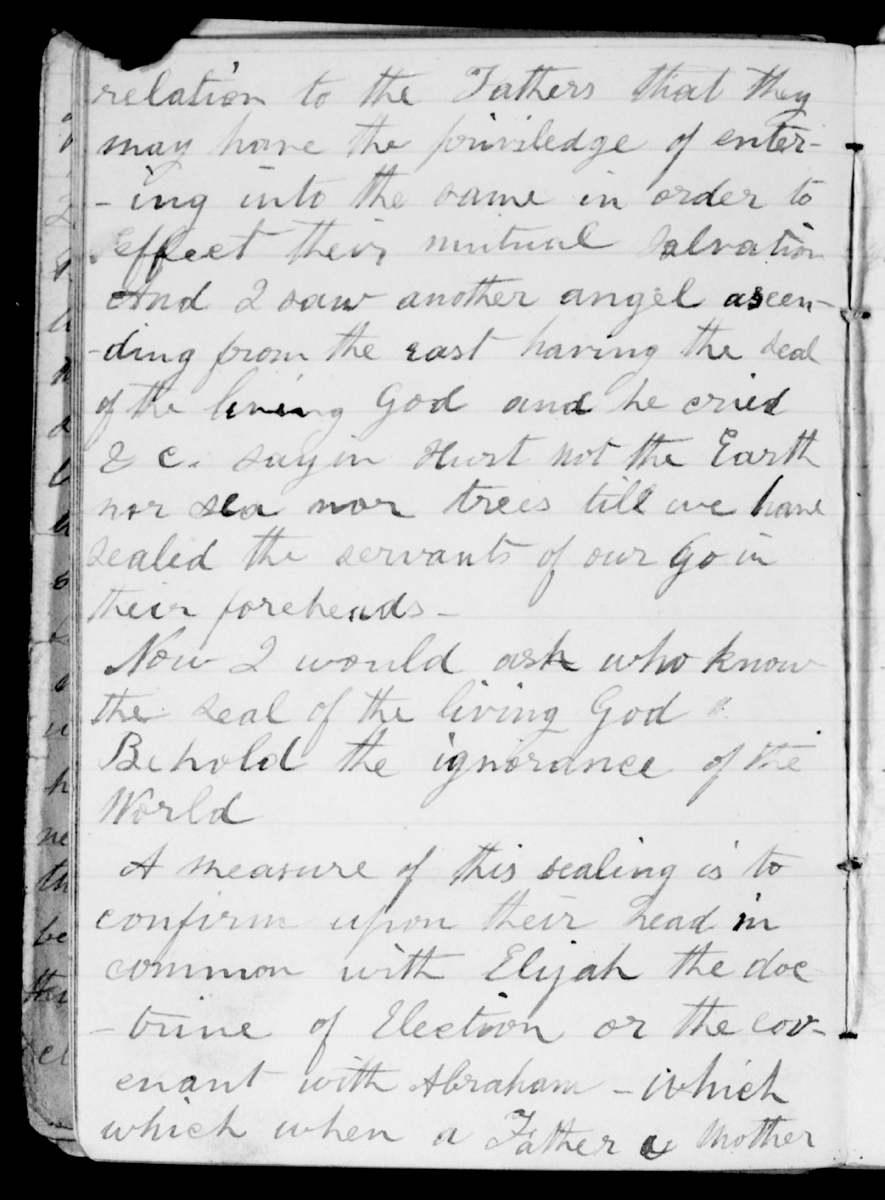 relation to the Fathers that they
may have the priviledge of enter-
- ing into the same in order to
effect their mutual salvation
And I saw another angel ascen-
-ding from the east having the seal
of the living God and he cried
& c. sayin Hurt not the Earth
nor sea nor trees till we have
sealed the servants of our Go in
their foreheads -
Now I would ask who know
the seal of the living God
Behold the ignorance of the
World
A measure of this sealing is to
confirm upon their head in
common with Elijah the doc
- trine of Election or the cov-
enant with Abraham - which
which when a Father & Mother